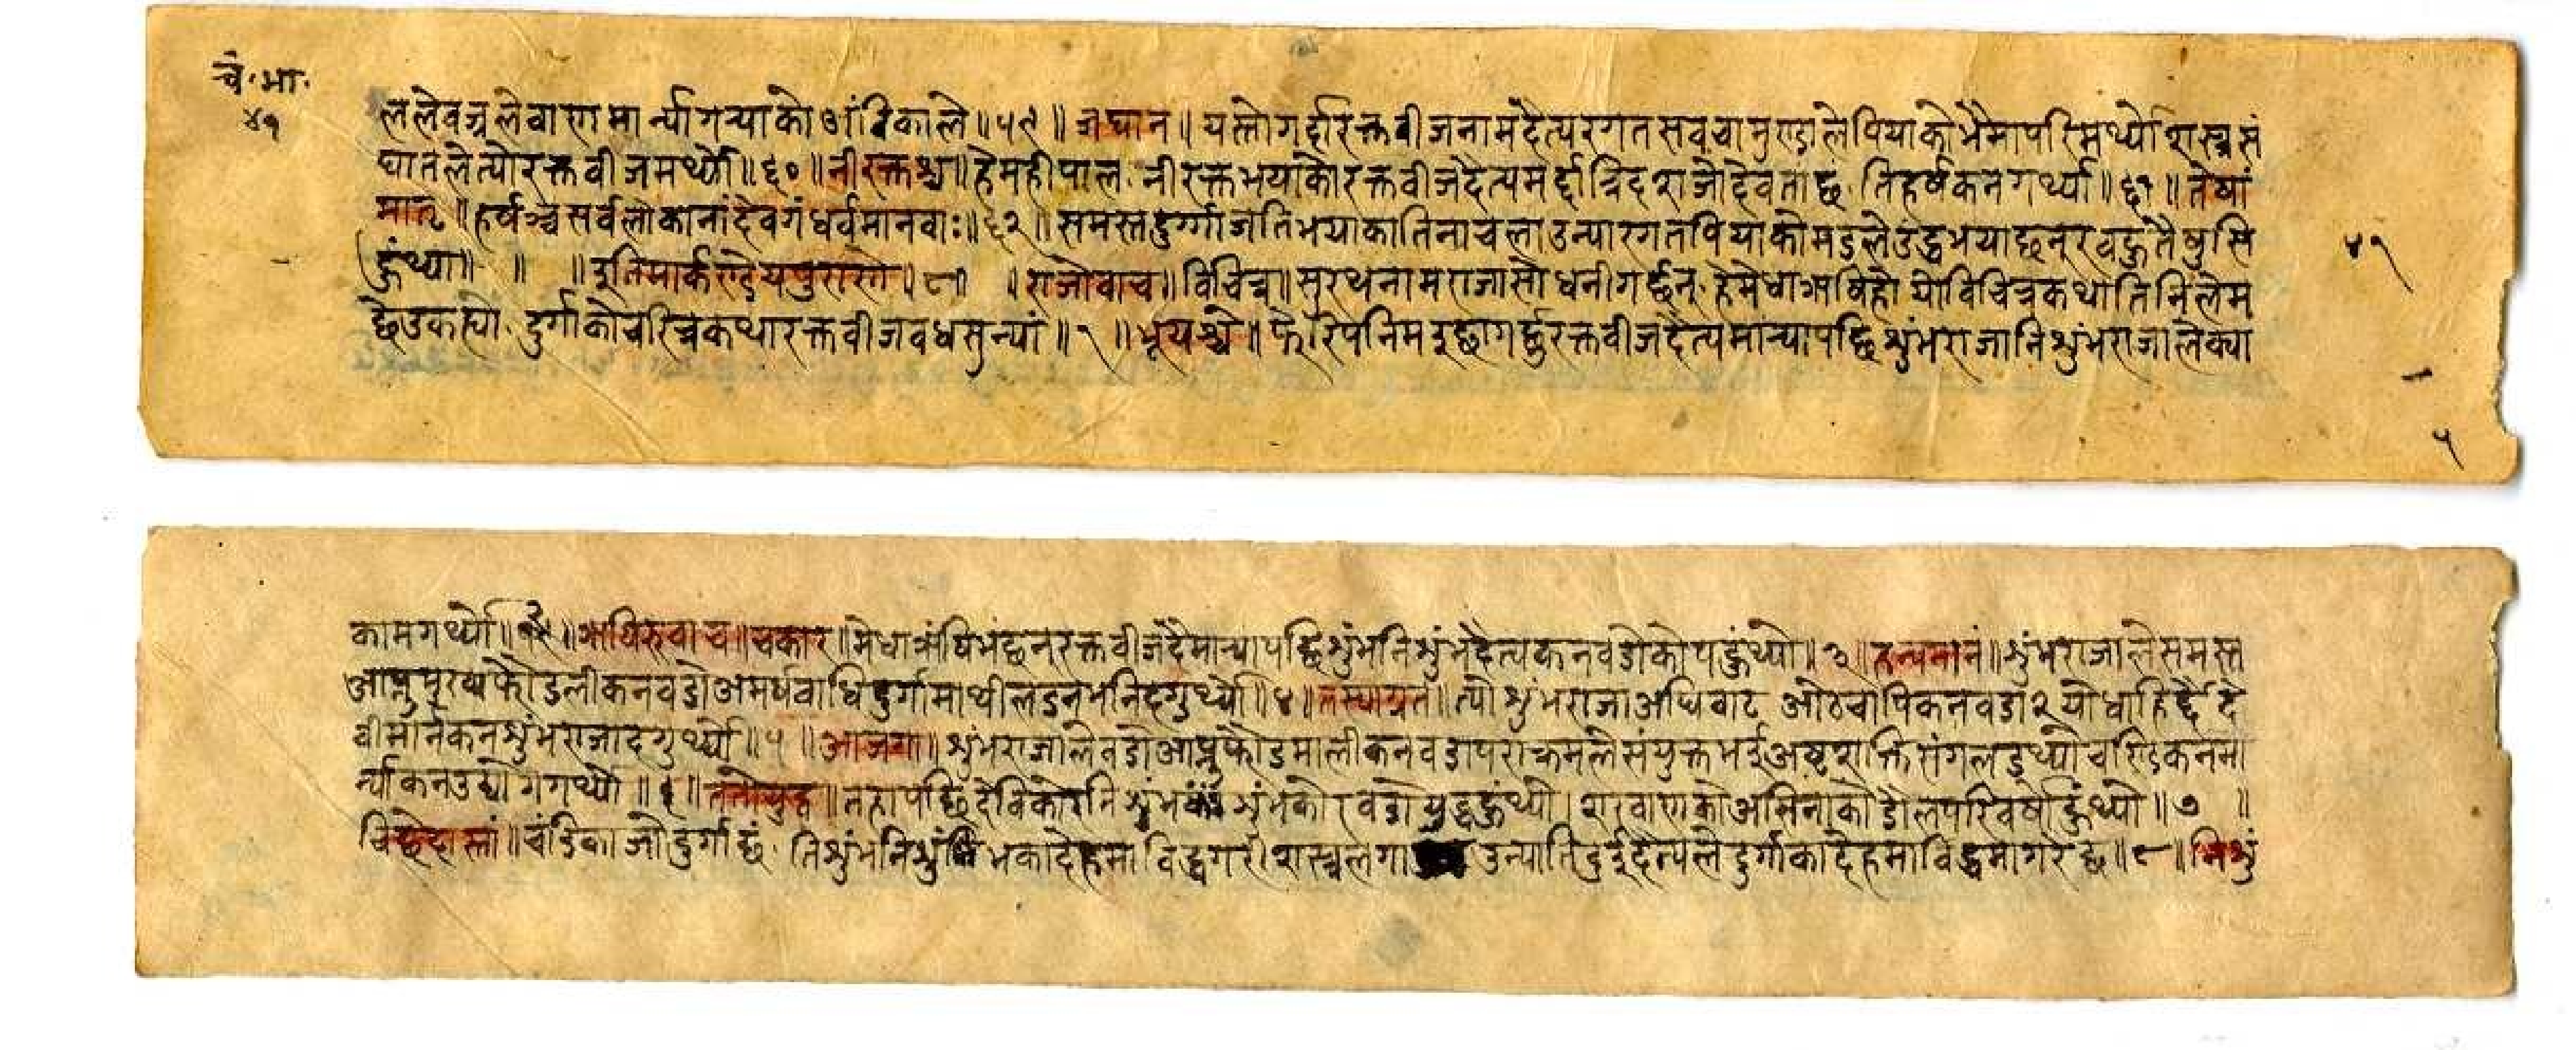 चं. भा.
४१
ललेवज्रलेवाणमार्न्यागर्‍याको अंविकाले॥५९॥जघान॥यस्तोगर्दारक्तवीजनामदैत्यरगतसवचामुण्डालेपियाकोभैमापरिमर्थ्यो शस्त्रसं
घातलेत्योरक्तवीजमर्थ्यो॥६०॥नीरक्तश्च॥हेमहीपाल. नीरक्तभयाकोरक्तवीजदैत्यमर्दा त्रिदशजोदेवताछं. तिहर्षकनगर्थ्या॥६१॥तेषां
मातृ॥हर्षञ्च सर्वलोकानांदेवगंधर्वमानवाः॥६२॥समस्तदुर्गाजतिभयाकातिनाचला उन्यारगतपियाकोमडलेउद्धभयाछन्रवहुतैषुसि
हुंथ्या॥ ॥ ॥इतिमार्कण्डेयपुराणे॥८॥ ॥राजोवाच॥विचित्र॥सुरथनामराजासोधनीगर्छन्. हेमेधाऋषिहो योविचित्रकथातिनिलेम
छेउकह्यो. दुर्गाकोचरित्रकथारक्तवीजवधसुन्यां॥१॥भूयश्चे॥फेरिपनिमइछागर्छुरक्तवीजदैत्यमार्‍यापछि शुंभराजानिशुंभराजालेक्या
४१
५
कामगर्थ्यो॥२॥ऋषिरुवाच॥चकार॥मेधाऋषिभंछन्रक्तवीजदैमार्‍यापछि शुंभनिशुंभदैत्यकनवडोकोपहुंथ्यो॥३॥हन्यमानं॥शुंभराजालेसमस्त
आफ्नुमुख्यफौडलीकनवडोअमर्षवाधिदुर्गामाथीलडनभनिदगुर्थ्यो॥४॥तस्याग्रत॥त्यो शुंभराजाअघिवाट ओठचापिकनवडा२योधाहिर्दै दे
वीमार्नकनशुंभराजादगुर्थ्यो॥५॥आजगा॥शुंभराजालेवडोआफ्नुफौडमालीकनवडापराक्रमलेसंयुक्तभईअष्टशक्तिसंगलडथ्योचण्डिकनमा
र्न्याकनउद्योगगर्थ्यो॥६॥ततोयुद्ध॥तहापछिदेविकोरनिशुंभशुंभकोरवडोयुद्धहुंथ्यो।शरवाणकोअसिनाकोडोलपरिवर्षाहुंथ्यो॥७॥
चिछेदास्तां॥चंडिकाजोदुर्गाछं. तिशुंभनिशुंभकादेहमाविद्धगरीशस्त्रलगा उन्यातिदुईदैत्यलेदुर्गाकादेहमाविद्धमागरेछ॥८॥निशुं